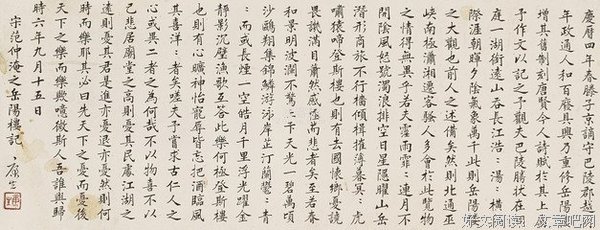 慶曆四年春滕子京謫守巴陵郡越
年政通人和百廢具興乃重修岳陽
增其舊制刻唐賢今人詩賦於其上
子作文以記之予觀夫巴陵勝狀在
庭一湖銜遠山吞長江浩：湯：橫
際涯朝暉夕陰氣象萬千此則岳陽
之大觀也前人之述備矣然則北通巫
峽南極瀟湘遷客騷人多會於此覽物
之情得無異乎若夫霪雨霏：連月不
開陰風怒號濁浪排空日星隱曜山岳
潛形商旅不行檣傾楫摧薄暮冥：虎
嘯猿啼登斯樓也則有去國懷鄉憂讒
畏譏滿目蕭然感極而悲者矣至若春
和景明波瀾不驚上下天光一碧萬頃
沙鷗翔集錦鱗游泳岸芷汀蘭郁：青
：而或長煙一空皓月千里浮光耀金
靜影沉璧漁歌互答此樂何極登斯樓
也則有心曠神怡寵辱皆忘把酒臨風
其喜洋：者矣嗟夫予嘗求古仁人之
心或異二者之為何哉不以物喜不以
己悲居廟堂之高則憂其民處江湖之
遠則憂其君是進亦憂退亦憂然則何
時而樂耶其必曰先天下之憂而憂後
天下之樂而樂歟噫微斯人吾誰與歸
時六年九月十五日
宋范仲淹之岳陽樓記